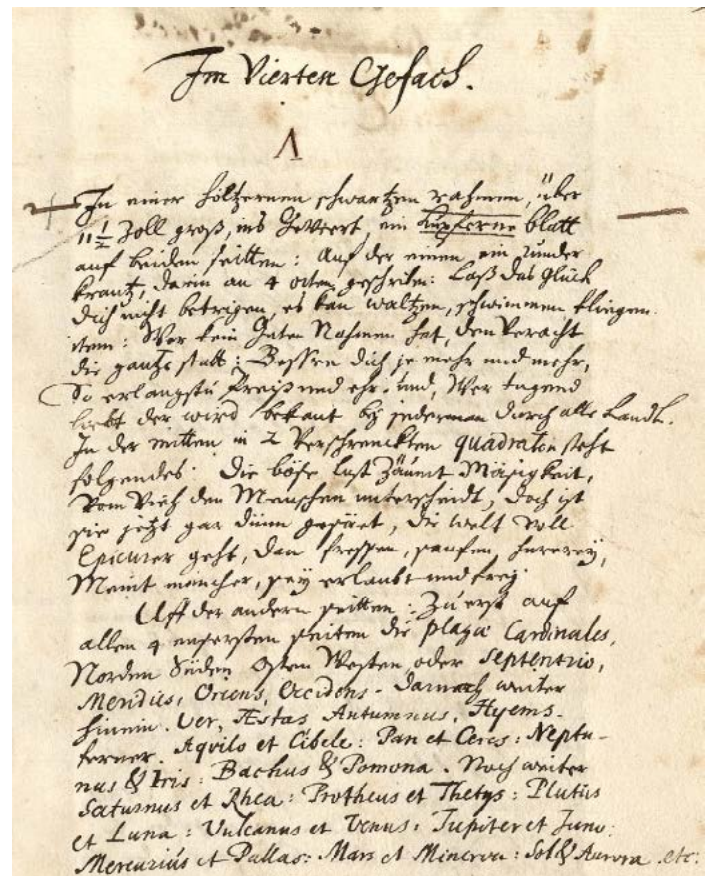 Im Vierten Gefach.
1
In einer höltzernen schwartzen rahmen, über
11½ Zoll groß, ins Geviert, ein kupferne blatt
auf beiden seitten: Auf der einen ein runder
krantz, darin an 4 orten geschriben: Laß das Glück
dich nicht betrigen, es kan waltzen, schwimmen fliegen.
item: Wer kein Guten Nahmen hat, den veracht
die gantze statt: Bessere dich je mehr und mehr,
So erlangstu Preiß und ehr. und, Wer tugend
liebt der wird bekant by jederman durch alle Landt.
In der mitten in 2 verschrenckten quadraten steht
folgendes: Die böse Lust Zäumt Mäsigkeit,
Vom Vieh den Menschen unterscheidt, doch ist
sie jetzt gar dünn gesäet, die welt voll
Epicurer geht, dan fressen, saufen, hurerey,
Meint mancher, sey erlaubt und frey.
Uff der andern seitten: Zu erst auf
allen 4 eusersten seiten die plagæ Cardinales,
Norden Süden Osten Westen, oder Septentrio,
Meridies, Oriens, Occidens. darnach weiter
hinein. Ver, Æstas Autumnus, Hyems.
ferner. Aquilo et Cibele: Pan et Ceres: Neptu-
nus & Iris: Bachus & Pomona. Noch weiter
Saturnus et Rhea: Protheus et Thetys: Plutus
et Luna: Vulcanus et Venus: Jupiter et Juno:
Mercurius et Pallas: Mars et Minerva: Sol & Aurora. etc: